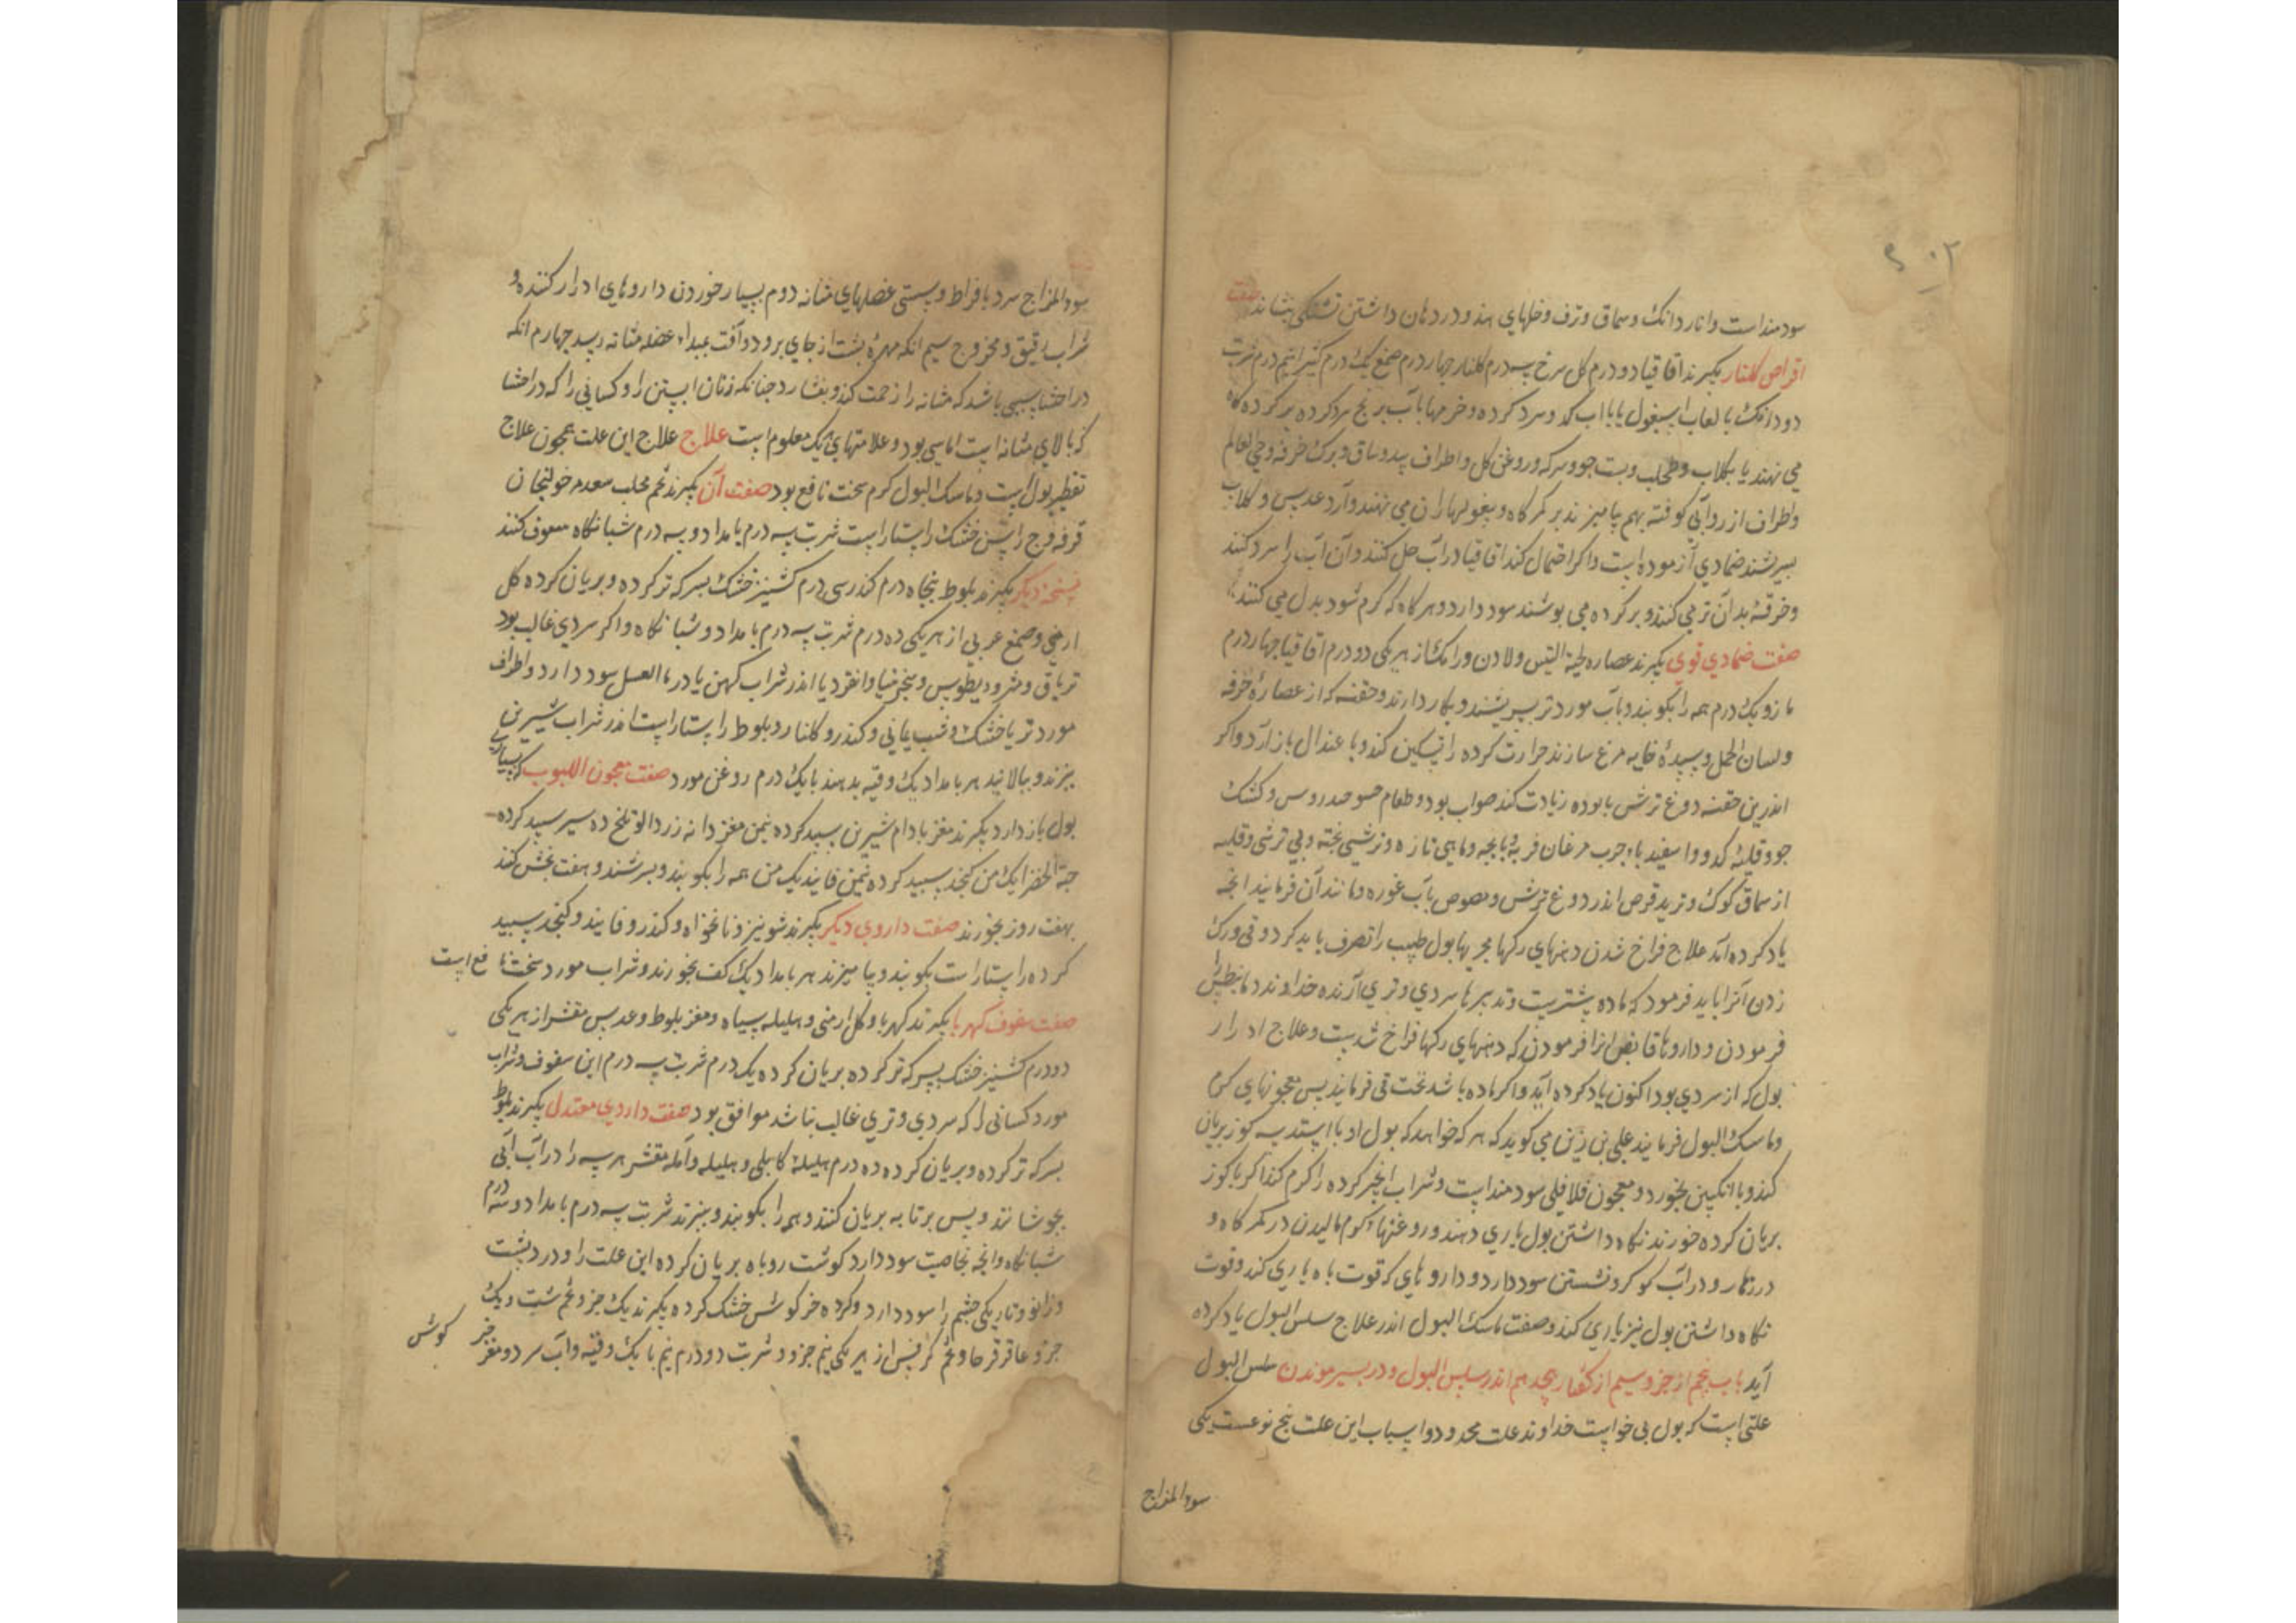 سودمنداست وانار دانک وسماق وترف وخلهای هند ودر دهان داشتن تشنگی بنشاند صفت
اقراص کلنار بکیرند اقاقیا دو درم کل سرخ سه درم کلنار چهار درم صمغ یک درم کتیرا نیم درم شربت
دو دانک با لعاب اسبغول یا با آب کدو سرد کرده وخرمها بآب برنج سرد کرده بر کرده کاه
می نهند یا بکلاب وطحلب وبست جو وسرکه وروغن کل واطراف بید وساق وبرک خرفه وحی العالم
واطراف از رو آبی کوفته بهم بیامیزند بر کمرکاه وبیغولها ران می نهند وآرد عدس وکلاب
بسریشند ضمادی آزموده است واکر احتمال کند اقاقیا در آب حل کنند وآن آب را سرد کنند
وخرقه بدان تر می کنند وبر کرده می بوشند سود دارد وهر کاه که کرم شود بدل می کنند
صفت ضمادی قوی بکیرند عصاره لحیة التیس ولادن ورامک از هر یکی دو درم اقاقیا چهار درم
مازو یک درم همه را بکوبند وبآب مورد تر بسریشند وبکار دارند وحقنه که از عصارهٔ خرفه
ولسان الحمل وسپیدهٔ خایه مرغ سازند حرارت کرده را تسکین کند وبا عتدال باز آرد واکر
اندرین حقنه دوغ ترش با بوده زیادت کند صواب بود وطعام حسو خندروس وکشک
جو وقلیهٔ کدو واسفیدباء چرب مرغان فربه وبابجه وماهی تازه وترشیی بخته وبی ترشی وقلیه
از سماق کوک وترید قرص اندر دوغ ترش ومصوص بآب غوره ومانند آن فرمایند انجه
یاد کرده آمد علاج فراخ شدن دهنهای رکها مجریها بول طبیب را تصرف باید کرد وقی ورک
زدن آنرا باید فرمود که ماده بیشتریست وتدبیرها سردی وتری آرنده خداوند دیانیطس
فرمودن وداروها قابض انرا فرمودن که دهنهای رکها فراخ شدست وعلاج ادرار
بول که از سردی بود اکنون یاد کرده آید واکر ماده باشد نخست قی فرمایند پس معجونهای کرم
وماسک البول فرمایند علی بن زین می کوید که هر که خواهد که بول او باایستد سه کوز بریان
کند وبا انکبین بخورد ومعجون فلافلی سودمند است وشراب انجیر کرده را کرم کند اکر با کوز
بریان کرده خورند نکاه داشتن بول یاری دهند وروغنها کرم مالیدن در کمرکاه و
در زهار ودر آب کوکرد نشستن سود دارد وداروهای که قوت باه یاری کند وقوت
نکاه داشتن بول نیز یاری کند وصفت ماسک البول اندر علاج سلس البول یاد کرده
آید باب پنجم از جزو سیم از کفتار هجدهم اندر سلس البول ودر بستر موندن سلس البول
علتی است که بول بی خواست خداوند علت محدود واسباب این علت پنج نوعست یکی
سوء المزاج
سوء المزاج سرد بافراط وسستی عضلهای مثانه دوم بسیار خوردن داروهای ادرار کننده و
شراب رقیق وممزوج سیم انکه مهرهٔ بشت از جای برود وآفت بمبداء عضله مثانه رسید چهارم انکه
در احشا سببی باشد که مثانه را زحمت کند وبفشارد چنانکه زنان آبستن را وکسانی را که در احشا
که بالای مثانه است اماسی بود وعلامتهای هر یک معلوم است علاج علاج این علت همچون علاج
تقطیر بول است وماسک البول کرم سخت نافع بود صفت آن بکیرند تخم محلب سعد خولنجان
قرفه وج راسن خشک راستا راست شربت سه درم بامداد وسه درم شبانکاه سفوف کنند
نسخه دیکر بکیرند بلوط بنجاه درم کندر سی درم کشنیز خشک بسرکه تر کرده وبریان کرده کل
ارمنی وصمغ عربی از هر یکی ده درم شربت سه درم بامداد وشبانکاه واکر سردی غالب بود
تریاق ومثرودیطوس وسنجرنیا وانقردیا اندر شراب کهن یا در ماالعسل سود دارد واطراف
مورد تر یا خشک وشب یمانی وکندر وکلنار وبلوط راستا راست اندر شراب شیرین
بپزند وببالایند هر بامداد یک وقیه بدهند با یک درم روغن مورد صفت معجون اللبوب که بسیاری
بول باز دارد بکیرند مغز بادام شیرین سپید کرده نیمن مغز دانه زردالو تلخ ده سیر سپید کرده
حبة الخضرا یک من کنجد سپید کرده نیمن فانید یک من همه را بکوبند وبسرشند وهفت بخش کند
بهفت روز بخورند صفت داروی دیکر بکیرند شونیز ونانخواه وکندر وفانید وکنجد سپید
کرده راستا راست بکوبند وبیامیزند هر بامداد یک کف بخورند وشراب مورد سخت نافع است
صفت سفوف کهربا بکیرند کهربا وکل ارمنی وهلیله سیاه ومغز بلوط وعدس مقشر از هر یکی
دو درم کشنیز خشک بسرکه تر کرده بریان کرده یک درم شربت سه درم این سفوف وشراب
مورد کسانی را که سردی وتری غالب نباشد موافق بود صفت داروی معتدل بکیرند بلوط
بسرکه تر کرده وبریان کرده ده درم هلیلهٔ کابلی وبلیله وآمله مقشر هر سه را در آب آبی
بجوشانند وپس بر تابه بریان کنند وهمه را بکوبند وببزند شربت سه درم بامداد وسه درم
شبانکاه وانچه بخاصیت سود دارد کوشت روباه بریان کرده این علت را ودرد بشت
وزانو وتاریکی چشم را سود دارد وکرده خرکوش خشک کرده بکیرند یک جزو تخم شبت ویک
جزو عاقرقرحا وتخم کرفس از هر یکی نیم جزو وشربت دو درم نیم با یک وقیه وآب سرد ومغز خر
کوش